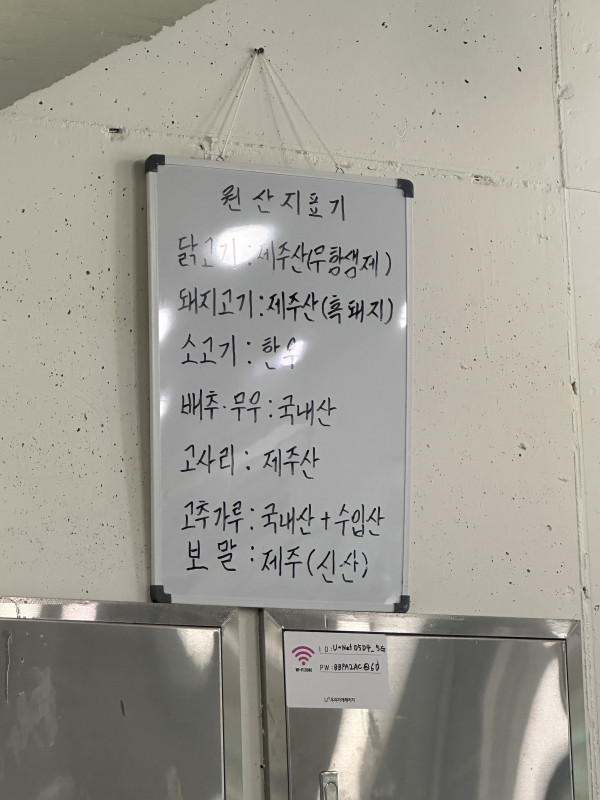 원산지표기
닭고기:제주산(무항생제)
돼지고기:제주산(흑돼지)
소고기: 한우
배추·무우:국내산
고사리: 제주산
고추가루:국내산+수입산
보말:제주(신산)
ID:U+Net05D9_5G
WI-FI ZONE